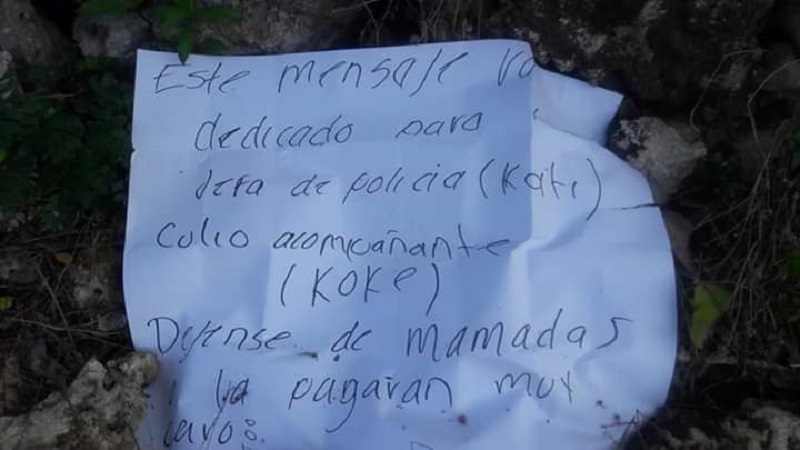 Este mensaje va
dedicado para
Jefa de policia (Kati)
Culio acompañante
(KOKe)
Dejense de mamadas
la pagaran muy
caro: